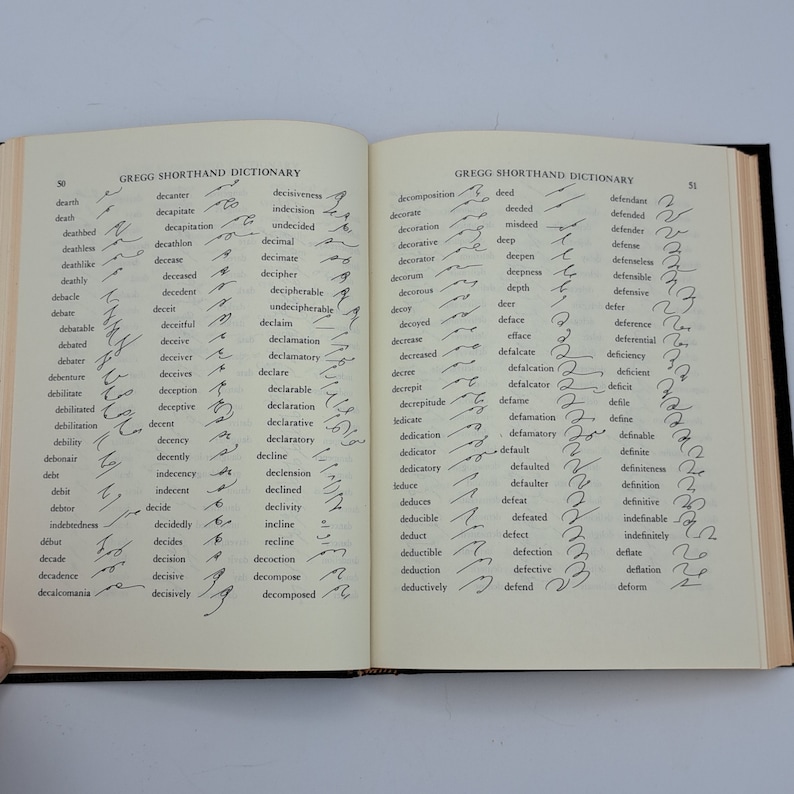 50
GREGG SHORTHAND DICTIONARY
dearth
death
deathbed
deathless
deathlike
deathly
debacle
debate
debatable
debated
debater
debenture
debilitate
debilitated
debilitation
debility
debonair
debt
debit
debtor
indebtedness
début
decade
decadence
decalcomania
decanter
decapitate
decapitation
decathlon
decease
deceased
decedent
deceit
deceitful
deceive
deceiver
deceives
deception
deceptive
decent
decency
decently
indecency
indecent
decide
decidedly
decides
decision
decisive
decisively
decisiveness
indecision
undecided
decimal
decimate
decipher
decipherable
undecipherable
declaim
declamation
declamatory
declare
declarable
declaration
declarative
declaratory
decline
declension
declined
declivity
incline
recline
decoction
decompose
decomposed
GREGG SHORTHAND DICTIONARY
51
decomposition
decorate
decoration
decorative
decorator
decorum
decorous
decoy
decoyed
decrease
decreased
decree
decrepit
decrepitude
dedicate
dedication
dedicator
dedicatory
deduce
deduces
deducible
deduct
deductible
deduction
deductively
deed
deeded
misdeed
deep
deepen
deepness
depth
deer
deface
efface
defalcate
defalcation
defalcator
defame
defamation
defamatory
default
defaulted
defaulter
defeat
defeated
defect
defection
defective
defend
defendant
defended
defender
defense
defenseless
defensible
defensive
defer
deference
deferential
deficiency
deficient
deficit
defile
define
definable
definite
definiteness
definition
definitive
indefinable
indefinitely
deflate
deflation
deform